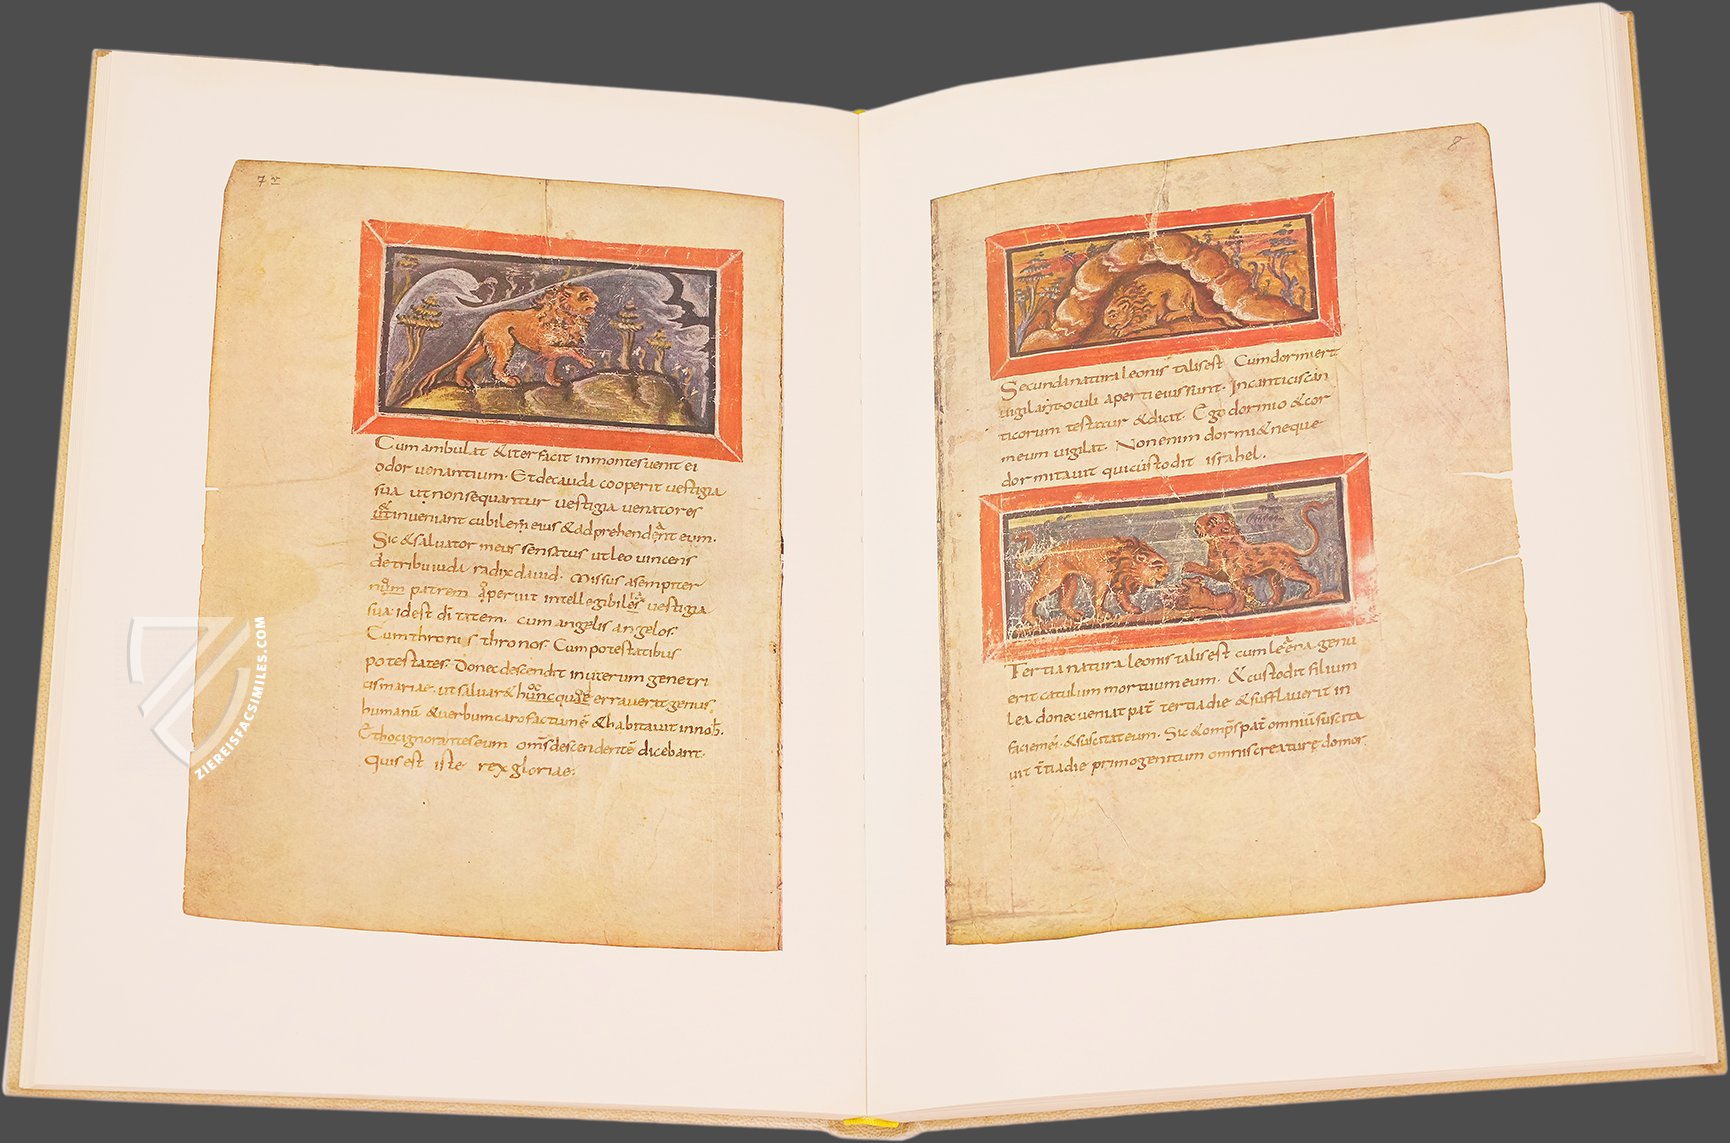 7 v
Cum ambulat & iter facit in montes uenit ei
odor uenantium. Et de cauda cooperit uestigia
sua ut non sequantur uestigia uenatores
inueniant cubilem eius & adprehendent eum.
Sic & saluator meus sensatus ut leo uincens
de tribu iuda radix dauid. Missus a sempiter
patrem aperuit intellegibiles uestigia
sua id est diuitatem. Cum angelis angelos.
Cum thronis thronos. Cum potestatibus
potestates. Donec descendit in uterum genetri
cis mariae. ut saluaret hunc quae errauerit genus.
humanū & uerbum caro factum ē & habitauit in nob.
Et hoc ignorantes eum oms descendentē dicebant.
Quis est iste rex gloriae.
8
Secunda natura leonis talis est Cum dormiert
uigilant oculi aperti eius sunt. In canticis can
ticorum testatur & dicit. Ego dormio & cor
meum uigilat. Non enim dormi& neque
dormitauit qui custodit israhel.
Tertia natura leonis talis est cum leera genu
erit catulum mortuum eum. & custodit filium
lea donec ueniat pat tertia die & sufflauerit in
faciem ei. & suscitat eum. Sic & omps pat omniū suscita
uit tia die primogenitum omnis creaturę domor
ZIEREISFACSIMILES.COM